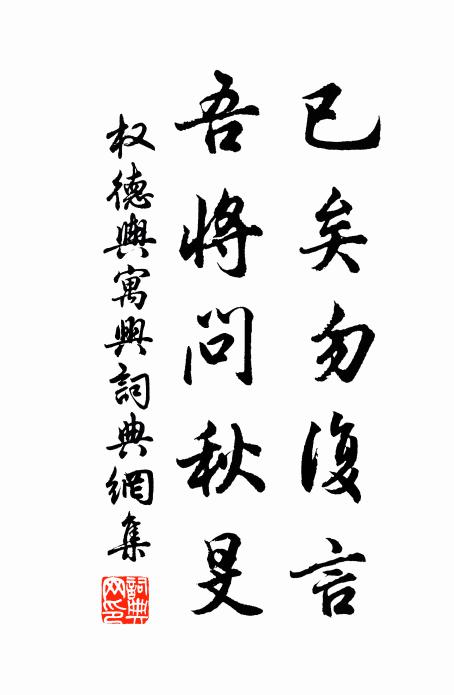 已矣勿復言
吾將問秋旻
权德輿寓興詞典網集
詞典網印